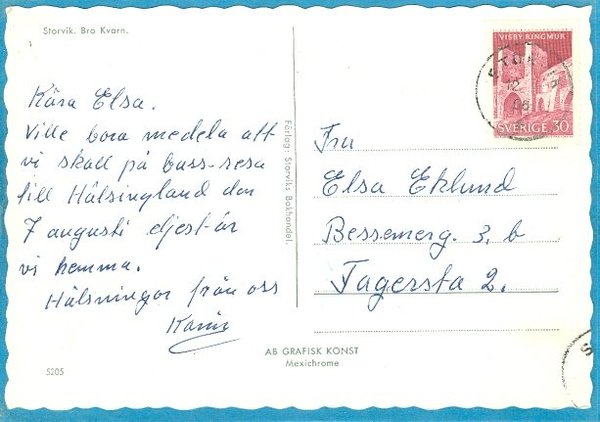 Storvik. Bro Kvarn.
Kära Elsa.
Ville bara medela att
vi skall på buss-resa
till Hälsingland den
7 augusti eljest är
vi hemma.
Hälsningar från oss
Karin
5205
Förlag: Storviks Bokhandel.
AB GRAFISK KONST
Mexichrome
VISBY RINGMUR
SVERIGE 30
Fru
Elsa Eklund
Bessemerg. 3. b
Fagersta 2.